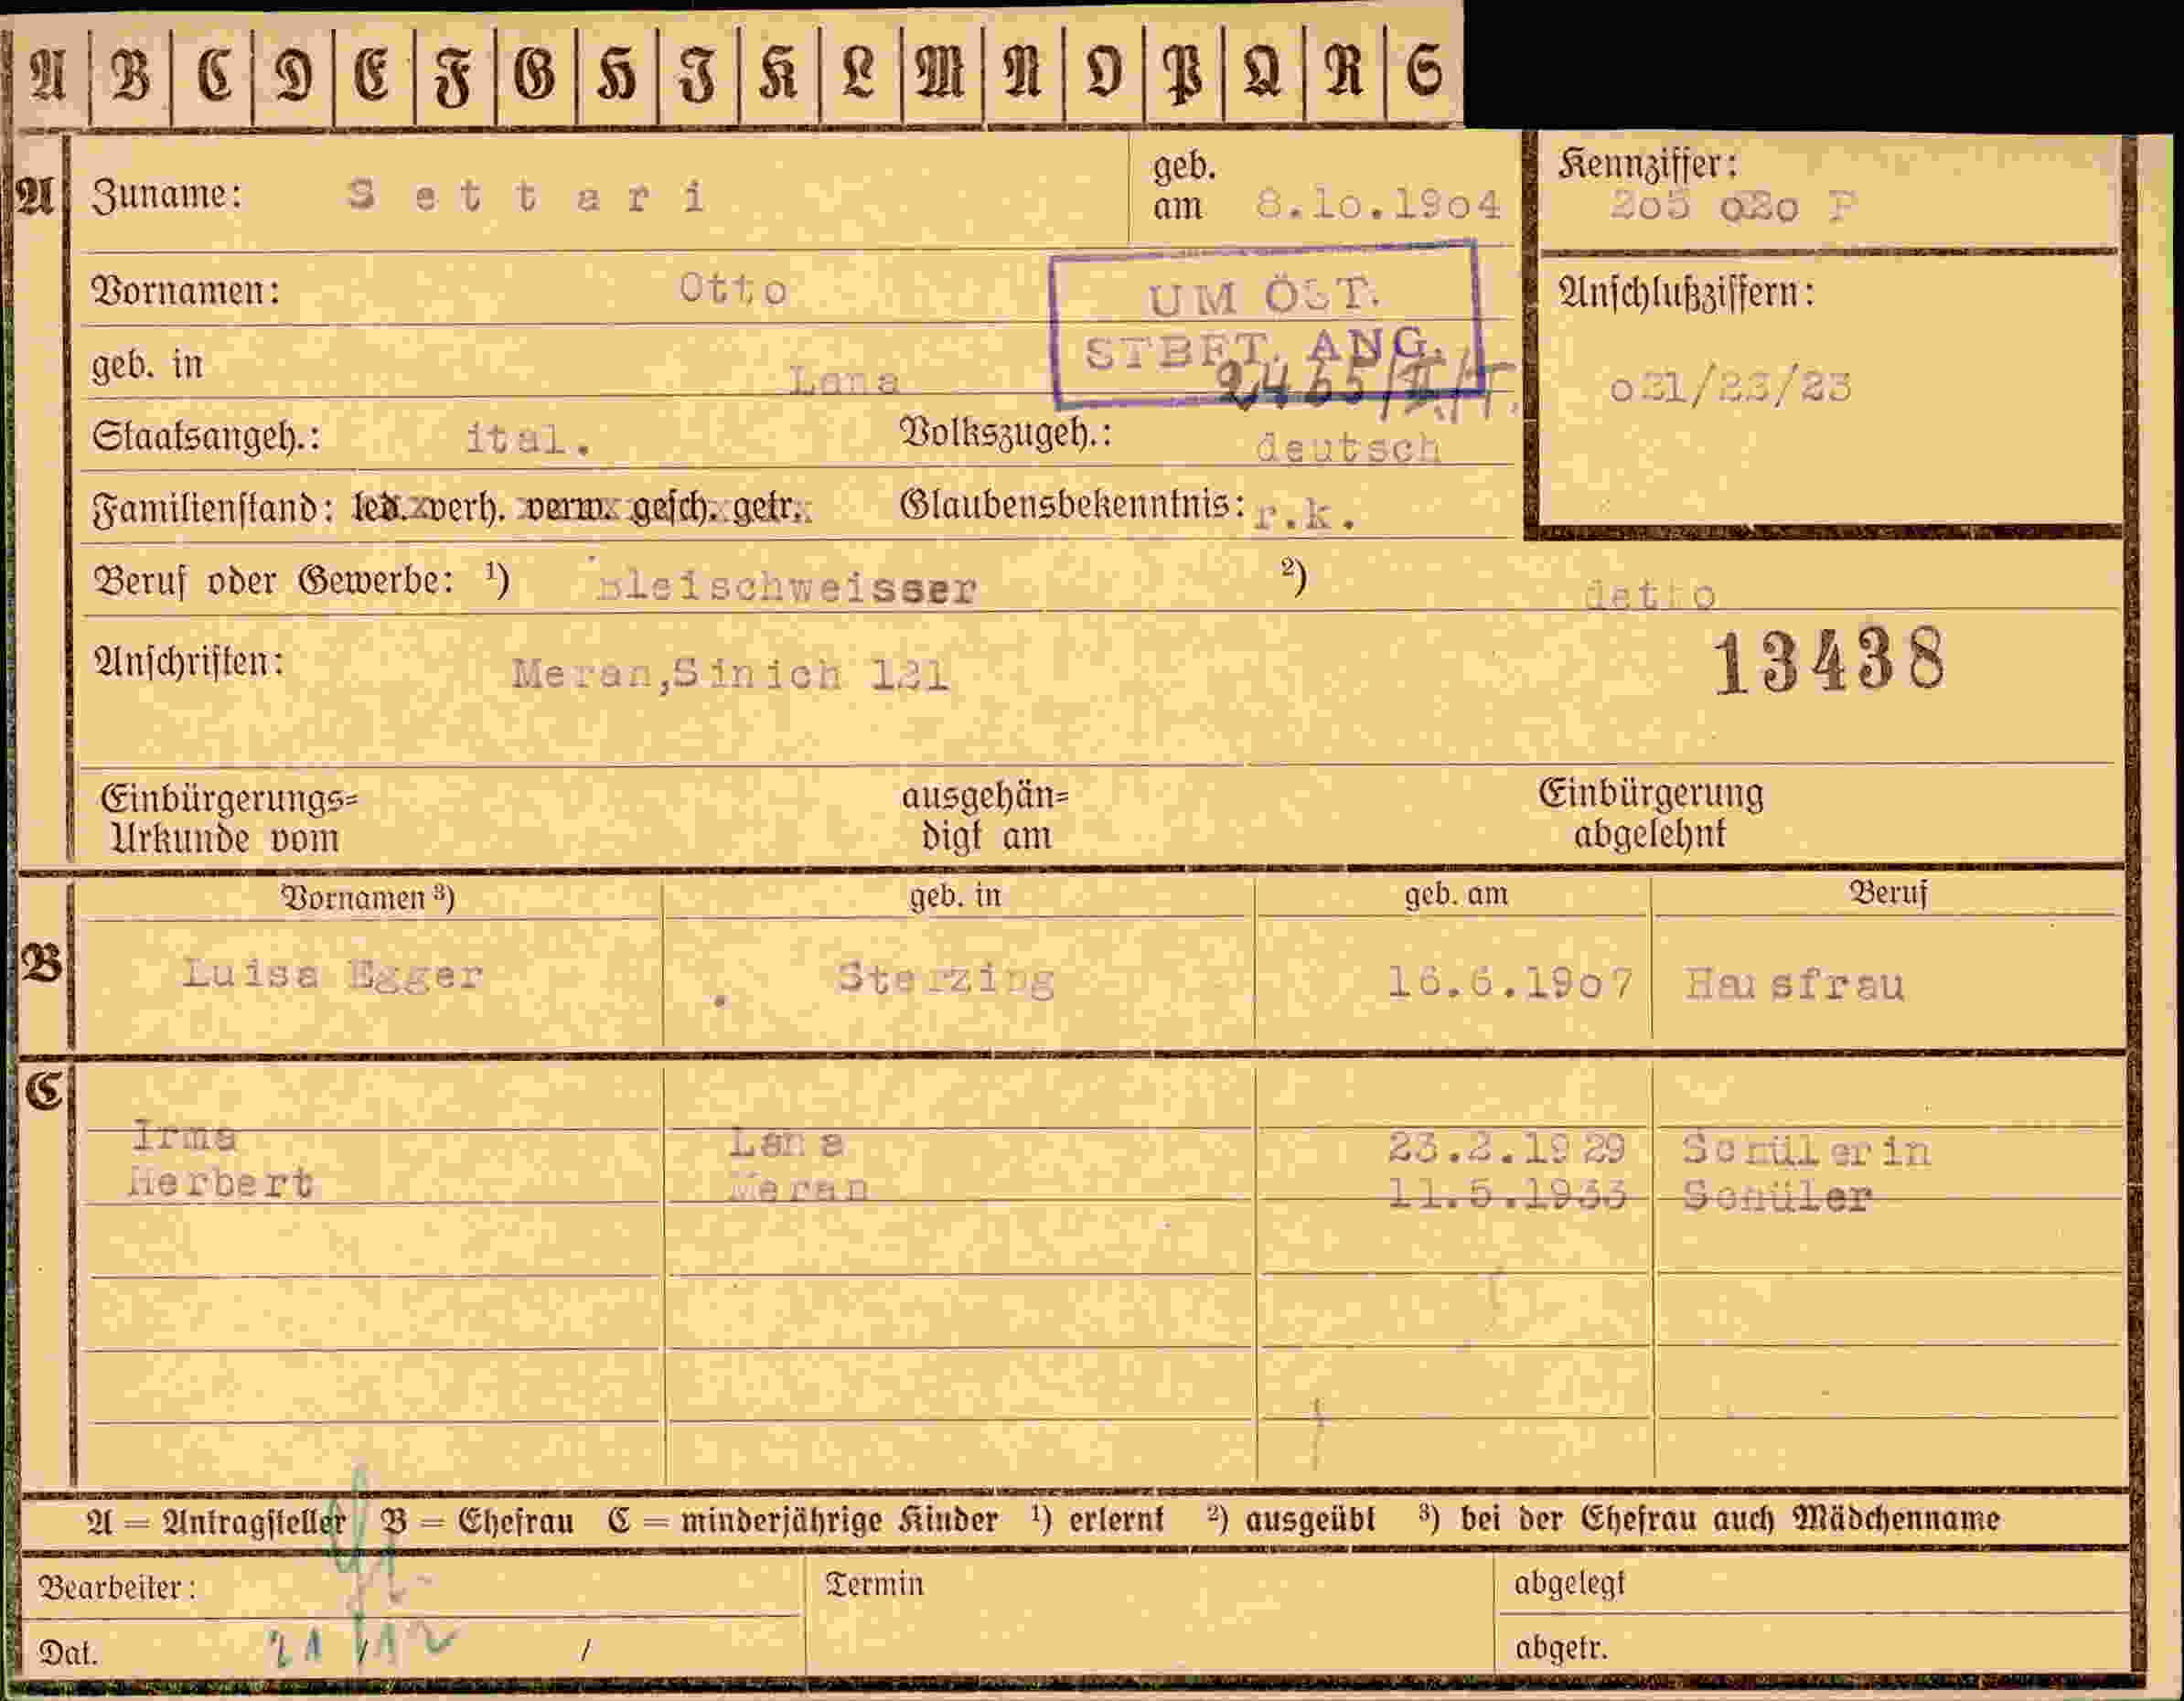 A B C D E F G H I K L M N O P Q R S
A Zuname: Settari geb. am 8.10.1904 Kennziffer: 205 020 P
Vornamen: Otto
UM ÖST.
STBET. ANG.
Anschlußziffern:
geb. in Lana
031/23/23
Staatsangeh.: ital. Volkszugeh.: deutsch
Familienstand: led. verh. verw. gesch. getr. Glaubensbekenntnis: r.k.
Beruf oder Gewerbe: ¹) Bleischweisser ²) detto
Anschriften: Meran,Sinich 121 13438
Einbürgerungs= ausgehän= Einbürgerung
Urkunde vom digt am abgelehnt
Vornamen ³) geb. in geb. am Beruf
B Luisa Egger Sterzing 16.6.1907 Hausfrau
C
Irma Lana 23.2.1929 Schülerin
Herbert Meran 11.5.1933 Schüler
A = Antragsteller B = Ehefrau C = minderjährige Kinder ¹) erlernt ²) ausgeübt ³) bei der Ehefrau auch Mädchenname
Bearbeiter: Termin abgelegt
Dat. 21/12 / abgetr.